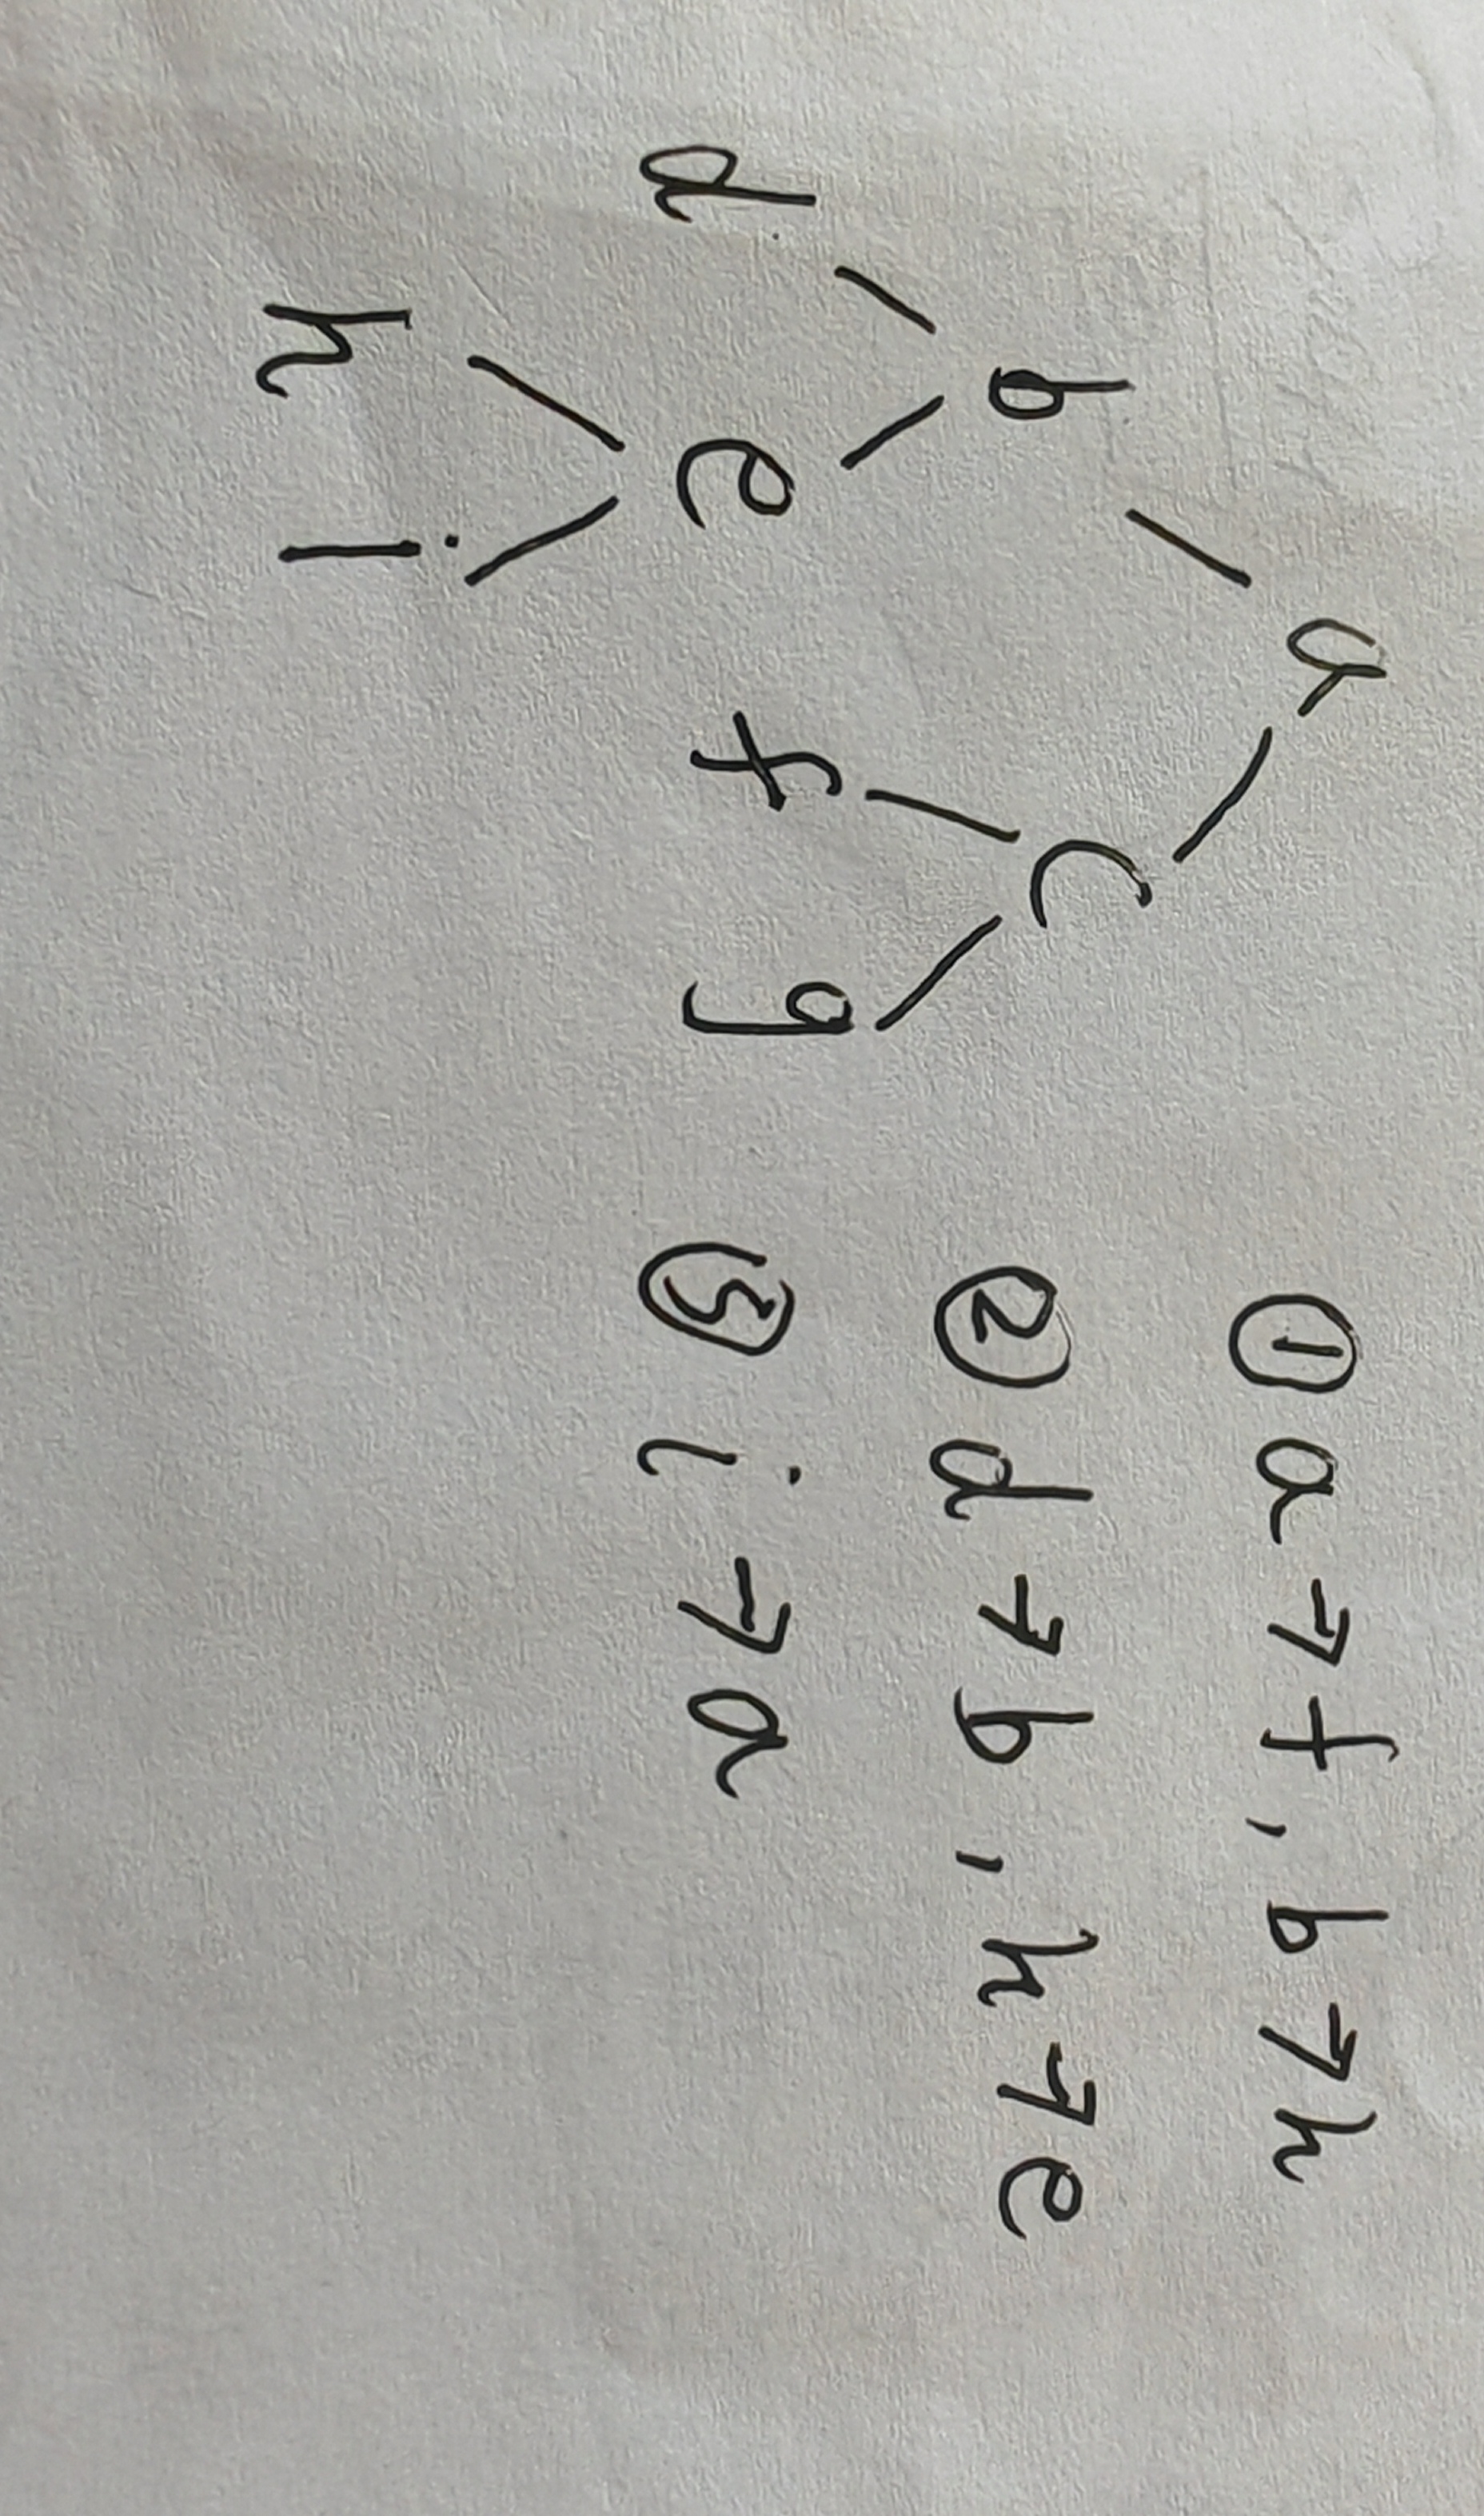 a
b c
d e f g
h i
① a → f , b → h
② d → b , h → e
③ i → a